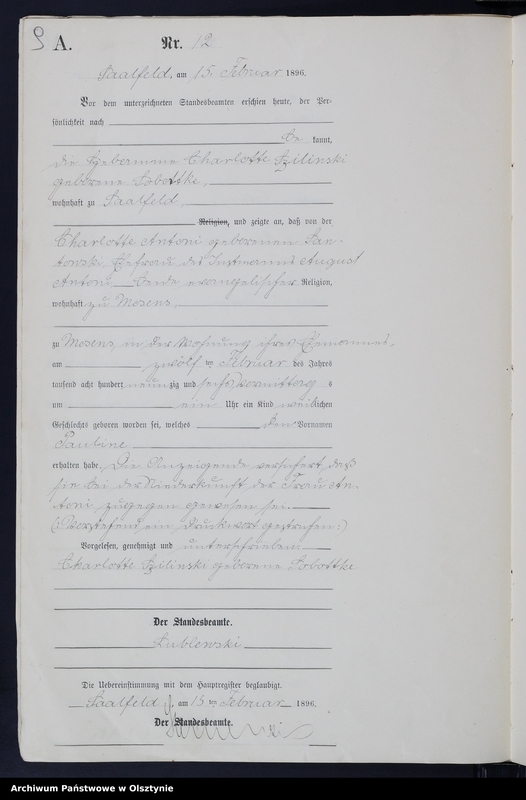 A.
Nr. 12
Saalfeld, am 15. Februar 1896.
Vor dem unterzeichneten Standesbeamten erschien heute, der Per-
sönlichkeit nach
be kannt,
die Hebamme Charlotte Szilinski
geborene Sobottke,
wohnhaft zu Saalfeld,
Religion, und zeigte an, daß von der
Charlotte Antoni geborenen
Ehefrau des Instmanns August
Antoni, beide evangelischer Religion,
wohnhaft zu Mosens,
zu Mosens, in der Wohnung ihres Ehemannes,
am zwölf ten Februar des Jahres
tausend acht hundert neun zig und sechs Vormittags
um ein Uhr ein Kind weiblichen
Geschlechts geboren worden sei, welches den Vornamen
Pauline
erhalten habe. Die Anzeigende versichert, daß
sie bei der Niederkunft der Frau An-
toni zugegen gewesen sei.
(: Vorstehend ein Druckwort gestrichen :)
Vorgelesen, genehmigt und unterschrieben:
Charlotte Szilinski geborene Sobottke
Der Standesbeamte.
Kublewski
Die Uebereinstimmung mit dem Hauptregister beglaubigt.
Saalfeld, am 15 ten Februar 1896.
Der Standesbeamte.
Archiwum Państwowe w Olsztynie